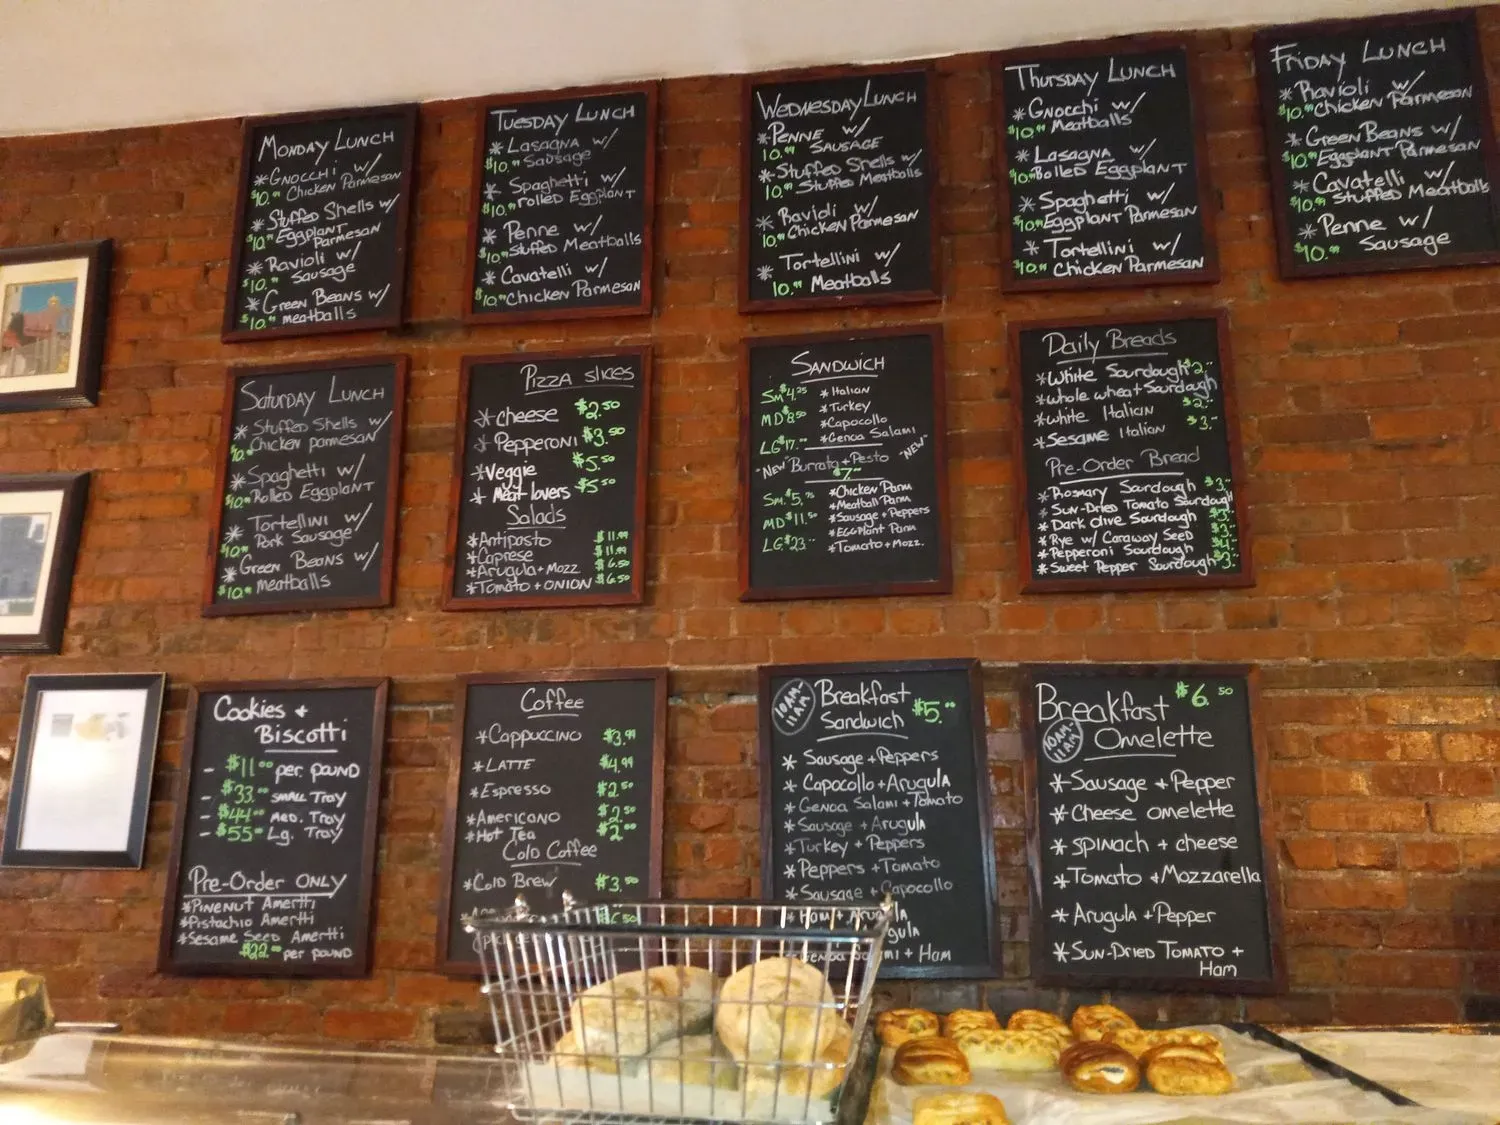 MONDAY LUNCH
* GNOCCHI w/
$10.99 Chicken Parmesan
* Stuffed Shells w/
$10.99 Eggplant
Parmesan
* Ravioli w/
$10.99 Sausage
* Green Beans w/
$10.99 meatballs
TUESDAY LUNCH
* LASAGNA w/
$10.99 Sausage
* Spaghetti w/
$10.99 rolled EGGPLANT
* Penne w/
$10.99 Stuffed Meatballs
* Cavatelli w/
$10.99 Chicken Parmesan
WEDNESDAY LUNCH
* PENNE w/
10.99 SAUSAGE
* Stuffed Shells w/
10.99 Stuffed Meatballs
* Ravioli w/
10.99 Chicken Parmesan
* Tortellini w/
10.99 Meatballs
THURSDAY LUNCH
* GNOCCHI w/
$10.99 Meatballs
* LASAGNA w/
$10.99 Rolled EGGPLANT
* Spaghetti w/
$10.99 Eggplant Parmesan
* Tortellini w/
$10.99 Chicken Parmesan
FRIDAY LUNCH
* Ravioli w/
$10.99 Chicken Parmesan
* Green Beans w/
$10.99 Eggplant Parmesan
* Cavatelli w/
$10.99 Stuffed Meatballs
* Penne w/
$10.99 Sausage
SATURDAY LUNCH
* Stuffed Shells w/
$10.99 Chicken parmesan
* Spaghetti w/
$10.99 Rolled EGGPLANT
* Tortellini w/
$10.99 Pork Sausage
* Green Beans w/
$10.99 meatballs
PIZZA SLICES
* cheese $2.50
* Pepperoni $3.50
* Veggie $5.50
* Meat lovers $5.50
Salads
* Antipasto $11.99
* Caprese $11.99
* Arugula + Mozz $6.50
* Tomato + ONION $6.50
SANDWICH
Sm $4.25
MD $8.50
LG $17.00
* Italian
* Turkey
* Capocollo
* Genoa Salami
"NEW" Burrata + Pesto "NEW"
$7.00
Sm $5.75
MD $11.50
LG $23.00
* Chicken Parm
* Meatball Parm
* Sausage + Peppers
* EGGPlant Parm
* Tomato + Mozz.
Daily Breads
* White Sourdough $2.00
* whole wheat Sourdough
* white Italian $2.00
* Sesame Italian $3.00
Pre-Order Bread
* Rosmary Sourdough $3.00
* Sun-Dried Tomato Sourdough
* Dark Olive Sourdough $3.00
* Rye w/ Caraway Seed $3.00
* Pepperoni Sourdough $4.00
* Sweet Pepper Sourdough $3.00
Cookies +
Biscotti
- $11.00 per pound
- $33.00 SMALL Tray
- $44.00 MED. Tray
- $55.00 Lg. Tray
Pre-Order ONLY
* PINENUT Amertti
* Pistachio Amertti
* Sesame Seed Amertti
$22.00 per pound
Coffee
* CAPPUCCINO $3.99
* LATTE $4.99
* Espresso $2.50
* AMERICANO $2.50
* Hot Tea $2.00
Cold Coffee
* COLD BREW $3.50
10AM-
11AM
Breakfast
Sandwich $5.00
* Sausage + Peppers
* Capocollo + Arugula
* Genoa Salami + Tomato
* Sausage + Arugula
* Turkey + Peppers
* Peppers + Tomato
* Sausage + Capocollo
* Ham + Arugula
Genoa Salami + Ham
Breakfast $6.50
10AM-
11AM
Omelette
* Sausage + Pepper
* Cheese omelette
* spinach + cheese
* Tomato + Mozzarella
* Arugula + Pepper
* SUN-DRIED TOMATO +
Ham